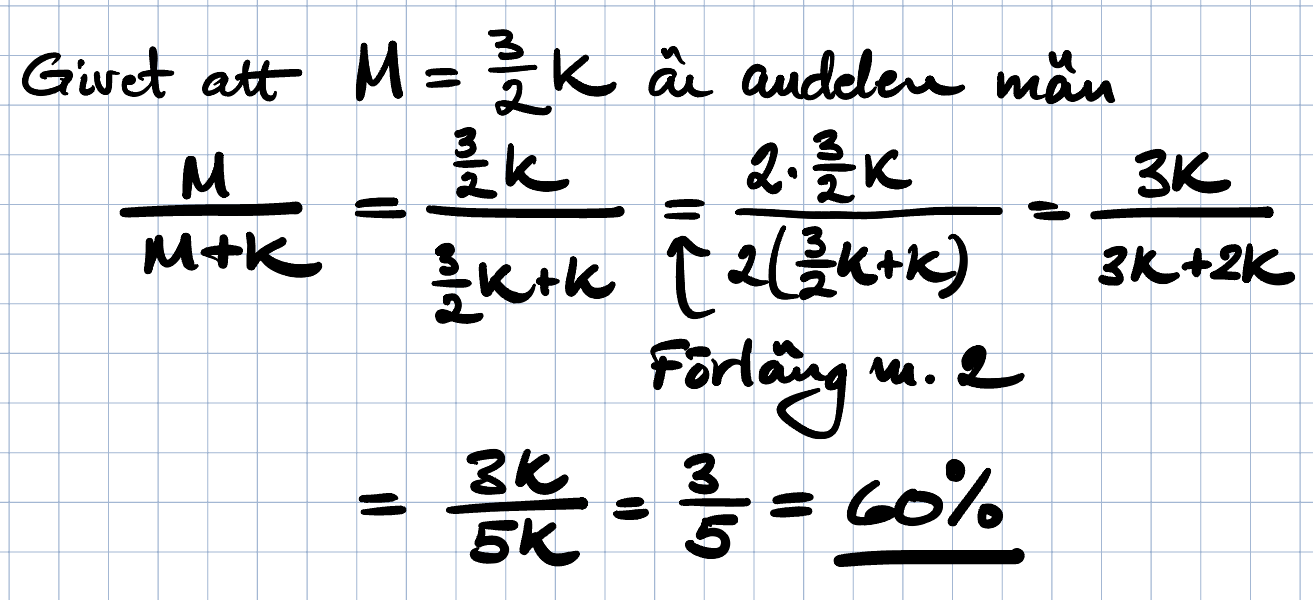 Givet att M = 3/2 K är andelen män
M/(M+K) = (3/2 K)/(3/2 K+K) = (2·3/2 K)/(2(3/2 K+K)) = 3K/(3K+2K)
↑
Förläng m. 2
= 3K/5K = 3/5 = 60%